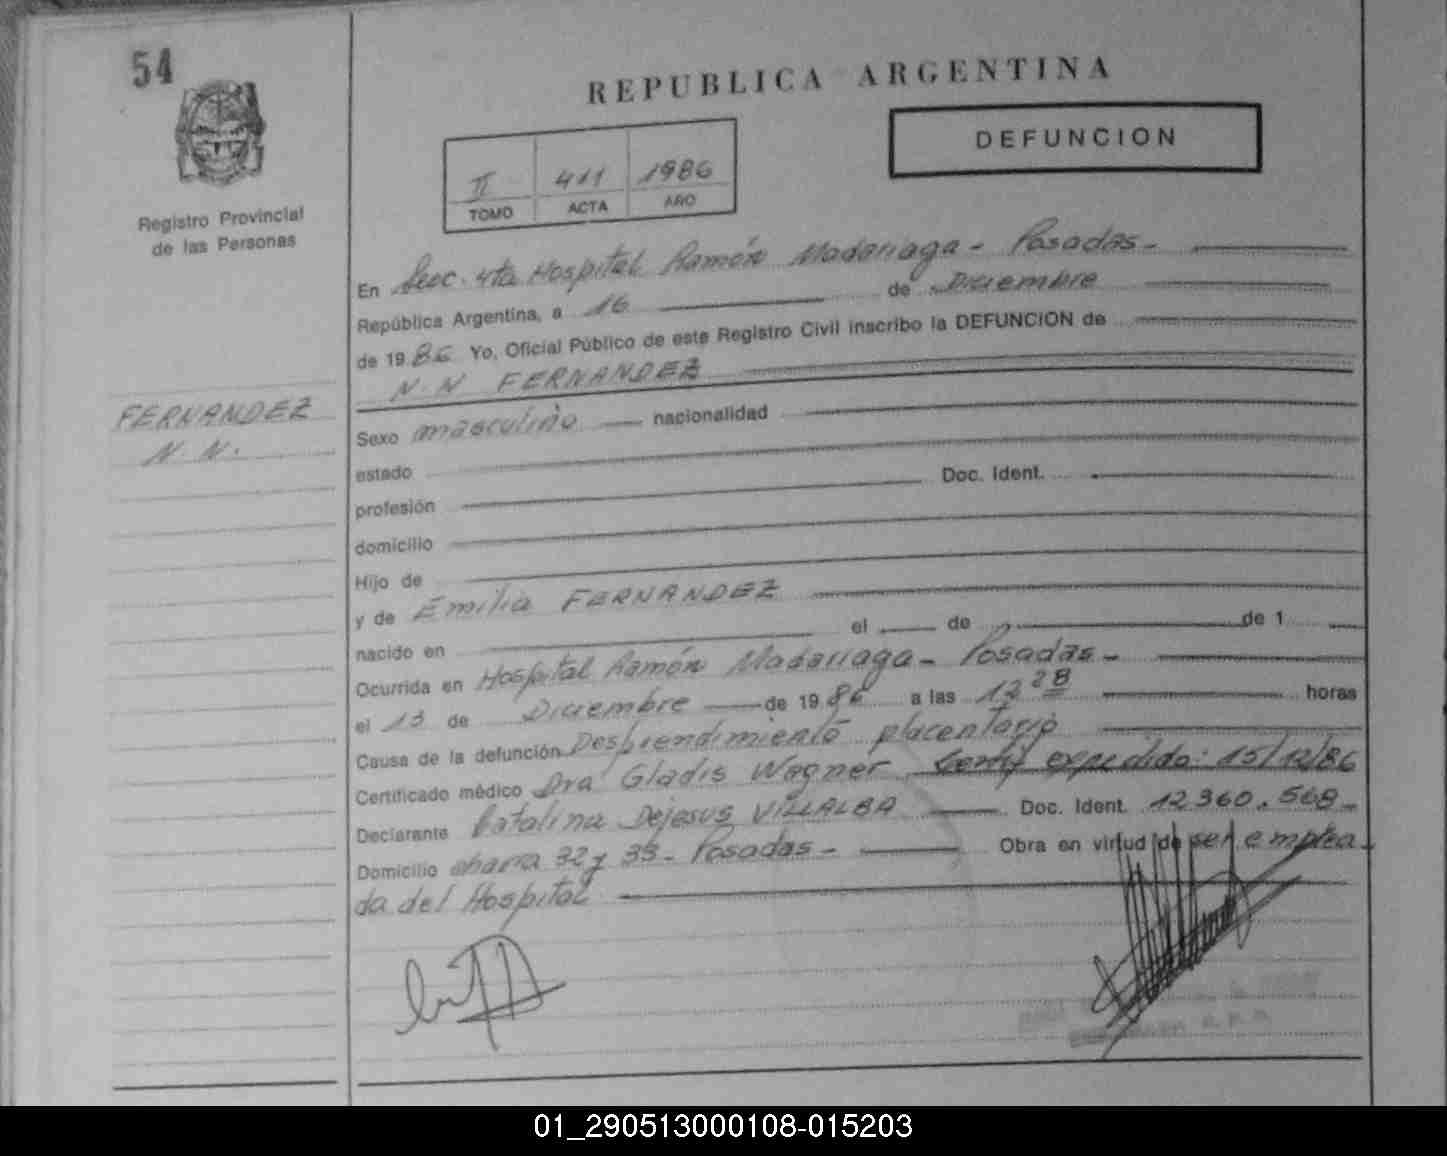 54
REPUBLICA ARGENTINA
DEFUNCION
II 411 1986
TOMO ACTA AÑO
Registro Provincial
de las Personas
En Secc. 4ta Hospital Ramón Madariaga - Posadas -
República Argentina, a 16 de Diciembre
de 1986 Yo, Oficial Público de este Registro Civil inscribo la DEFUNCION de
N. N FERNANDEZ
FERNANDEZ
N. N.
Sexo masculino nacionalidad
estado
profesión Doc. Ident.
domicilio
Hijo de
y de Emilia FERNANDEZ
nacido en el de de 1
Ocurrida en Hospital Ramón Madariaga - Posadas -
el 13 de Diciembre de 1986 a las 12 28 horas
Causa de la defunción Desprendimiento placentario
Certificado médico Dra Gladis Wagner Certif expedido: 15/12/86
Declarante Catalina Dejesus VILLALBA Doc. Ident. 12360.568-
Domicilio chacra 32 y 33 - Posadas - Obra en virtud de ser emplea
da del Hospital
01_290513000108-015203